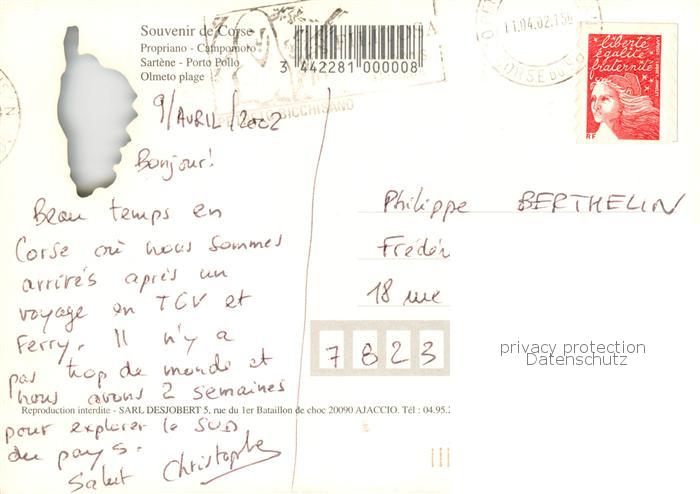 Souvenir de Corse
Propriano - Campomoro
Sartène - Porto Pollo
Olmeto plage
3 442281 000008
11.04.02
CORSE DU SUD
liberté
égalité
fraternité
RF
9/AVRIL/2002
Bonjour!
Beau temps en
Corse où nous sommes
arrivés après un
voyage en TGV et
Ferry. Il n'y a
pas trop de monde et
nous avons 2 semaines
pour explorer le SUD
du pays.
Salut Christophe
Philippe BERTHELIN
Frédér
18 rue
7823
privacy protection
Datenschutz
Reproduction interdite - SARL DESJOBERT 5, rue du 1er Bataillon de choc 20090 AJACCIO. Tél : 04.95.2